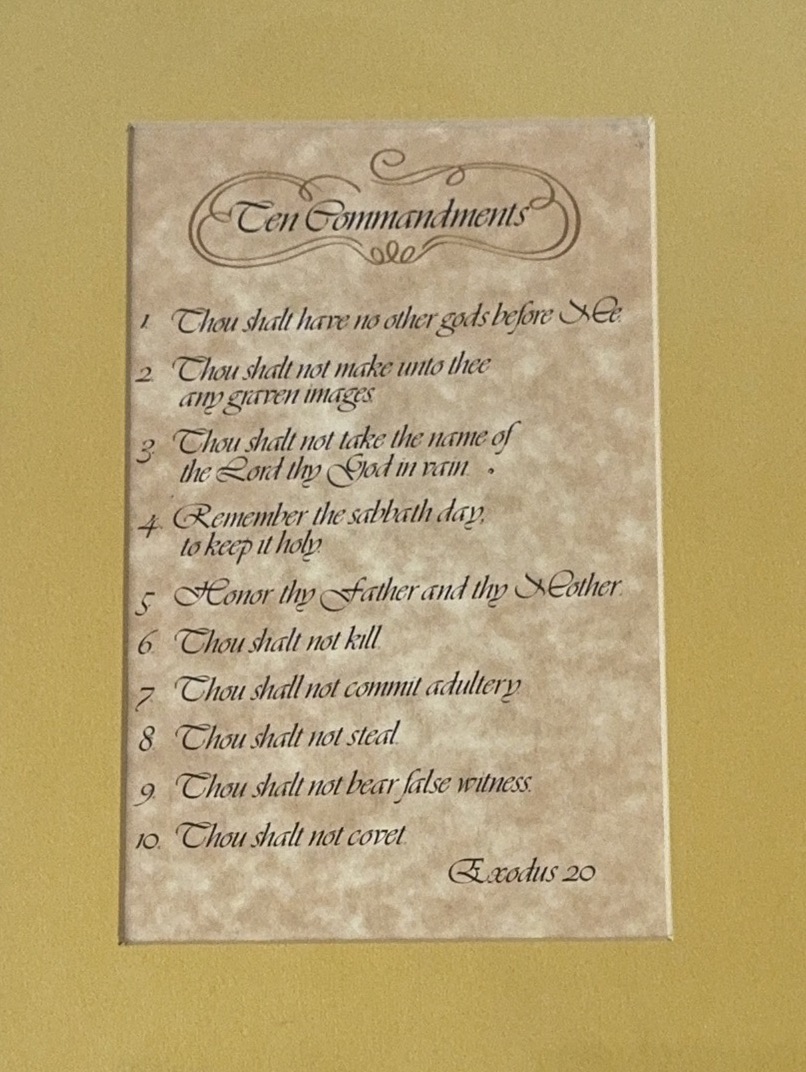 Ten Commandments
1. Thou shalt have no other gods before Me.
2. Thou shalt not make unto thee
any graven images.
3. Thou shalt not take the name of
the Lord thy God in vain.
4. Remember the sabbath day,
to keep it holy.
5 Honor thy Father and thy Mother.
6. Thou shalt not kill.
7 Thou shall not commit adultery.
8. Thou shalt not steal.
9. Thou shalt not bear false witness.
10. Thou shalt not covet.
Exodus 20